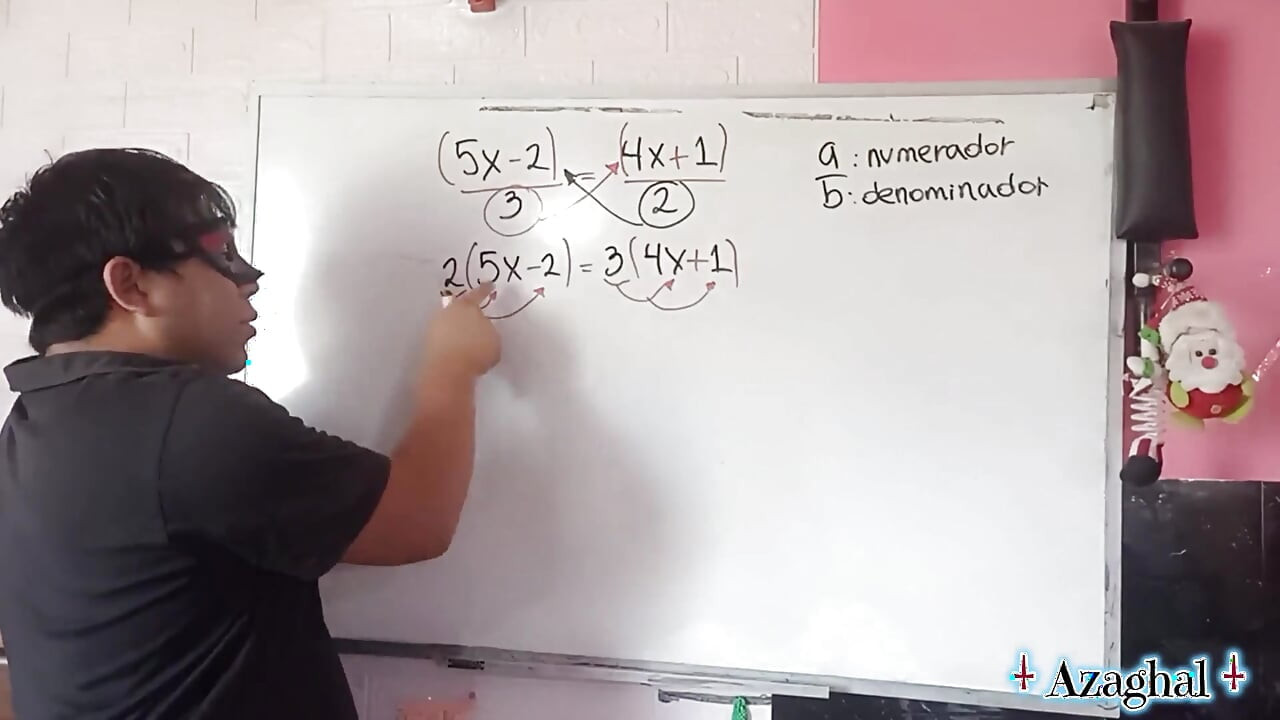 (5x-2) = (4x+1)
3 2
2(5x-2) = 3(4x+1)
a : numerador
b : denominador
Azaghal